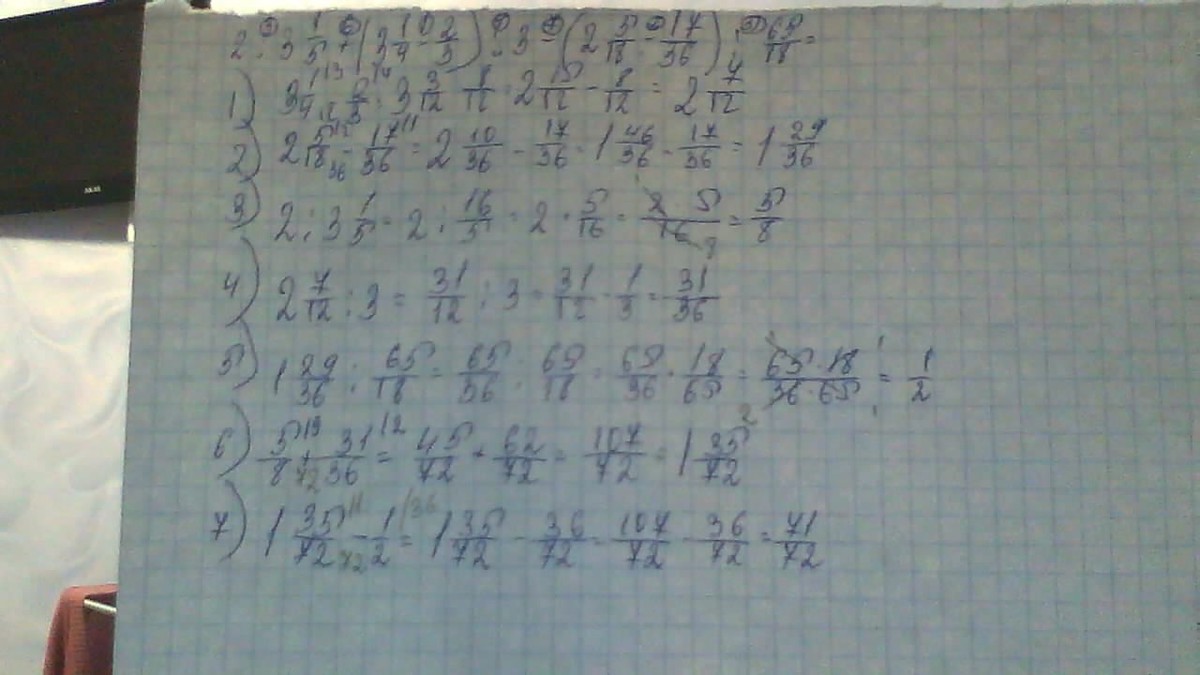 2 : 3 1/5 + (3 1/4 - 2/3) : 3 - (2 5/18 - 17/36) : 65/18 =
1) 3 1/4 - 2/3 = 3 3/12 - 8/12 = 2 15/12 - 8/12 = 2 7/12
2) 2 5/18 - 17/36 = 2 10/36 - 17/36 = 1 46/36 - 17/36 = 1 29/36
3) 2 : 3 1/5 = 2 : 16/5 = 2 · 5/16 = 2 · 5/16 = 5/8
4) 2 7/12 : 3 = 31/12 : 3 = 31/12 · 1/3 = 31/36
5) 1 29/36 : 65/18 = 65/36 : 65/18 = 65/36 · 18/65 = 65 · 18/36 · 65 = 1/2
6) 5/8 + 31/36 = 45/72 + 62/72 = 107/72 = 1 35/72
7) 1 35/72 - 1/2 = 1 35/72 - 36/72 = 107/72 - 36/72 = 71/72